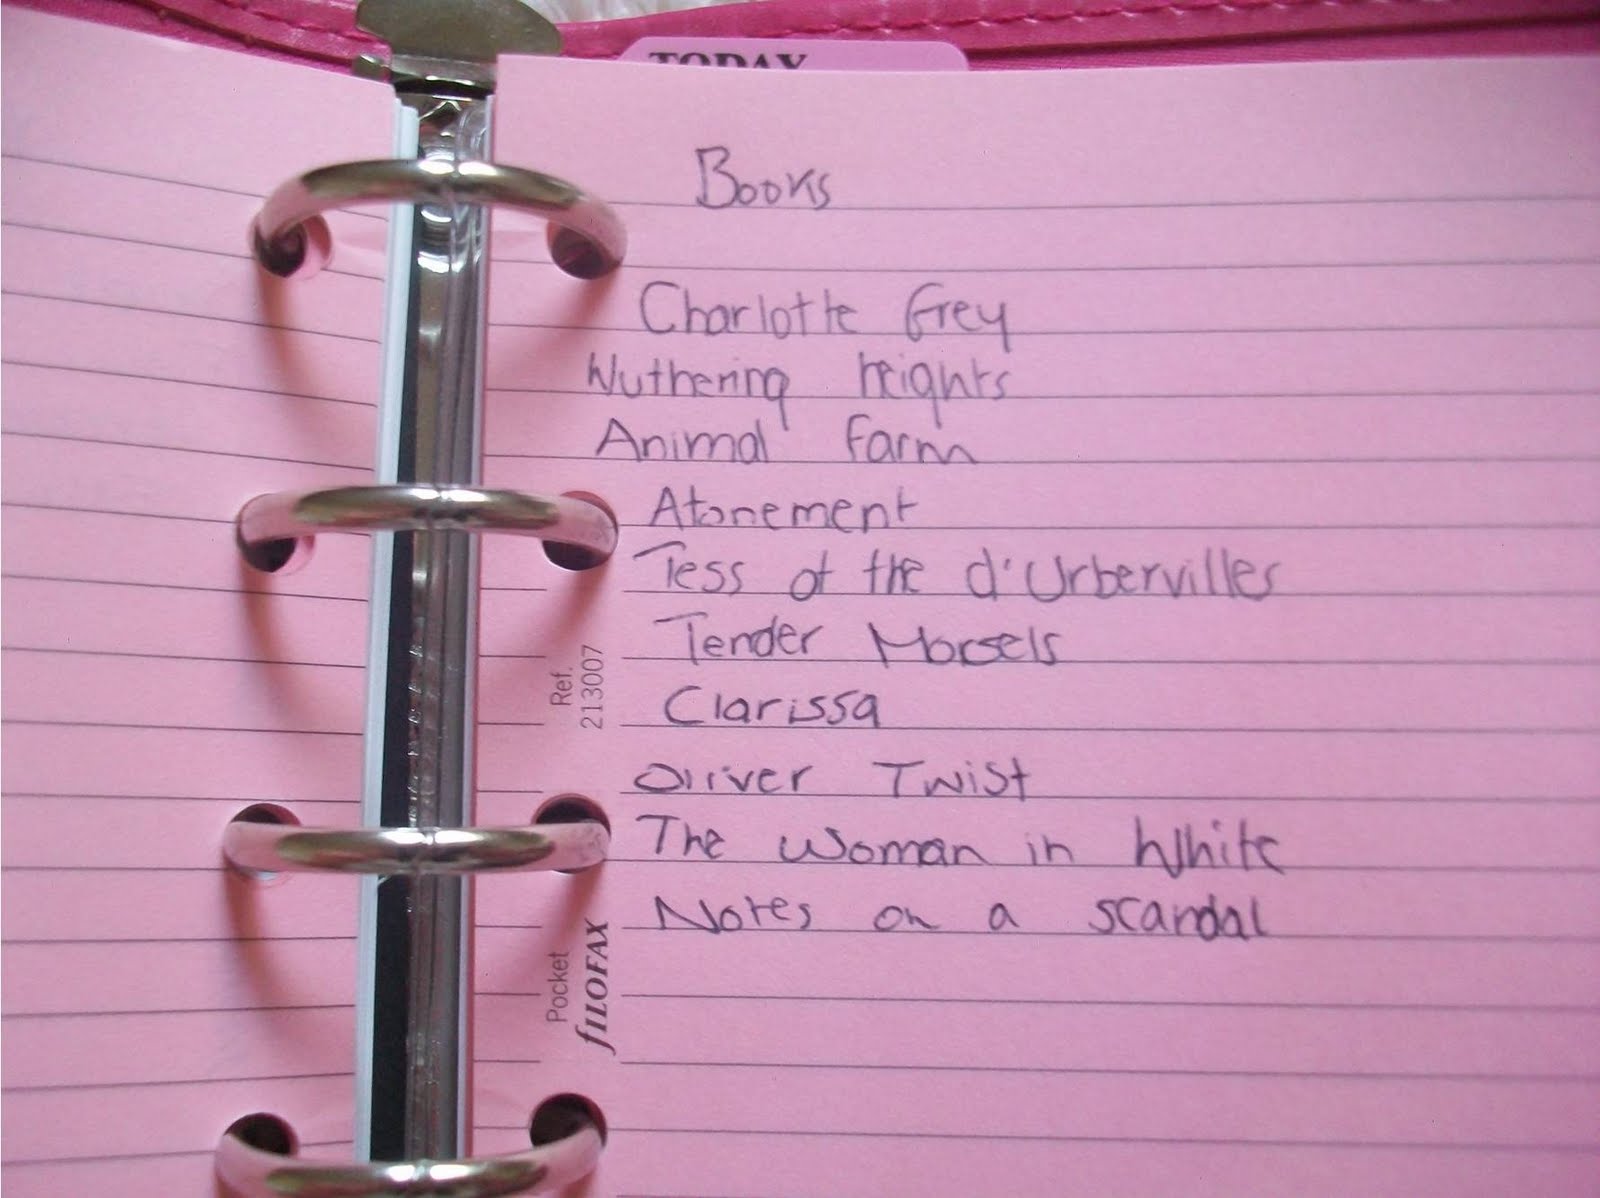 TODAY
Books
Charlotte Grey
Wuthering heights
Animal Farm
Atonement
Tess of the d'Urbervilles
Tender Morsels
Clarissa
Oliver Twist
The Woman in White
Notes on a scandal
Ref.
213007
Pocket
FILOFAX